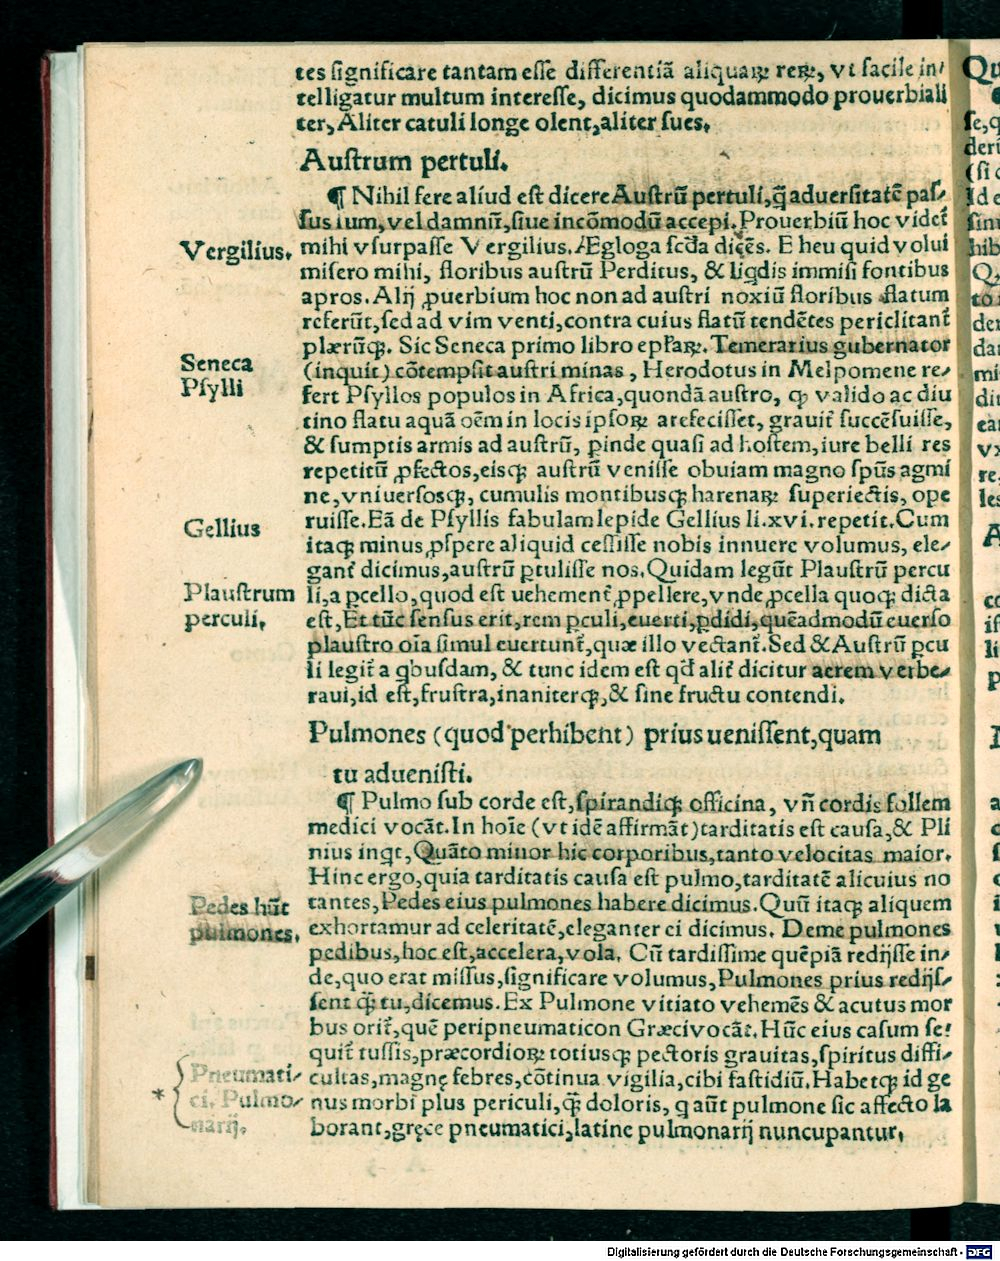 tes significare tantam esse differentiã aliquaꝝ reꝝ, vt facile in/
telligatur multum interesse, dicimus quodammodo prouerbiali
ter, Aliter catuli longe olent, aliter sues.
Austrum pertuli.
¶ Nihil fere aliud est dicere Austrũ pertuli, q̃ aduersitatẽ pas/
sus sum, vel damnũ, siue incõmodũ accepi. Prouerbiũ hoc videt᷑
Vergilius. mihi vsurpasse Vergilius. Ægloga scďa dicẽs. E heu quid volui
misero mihi, floribus austrũ Perditus, & liꝗdis immisi fontibus
apros. Alij ꝓuerbium hoc non ad austri noxiũ floribus flatum
referũt, sed ad vim venti, contra cuius flatũ tendẽtes periclitant᷑
plærũꝗ. Sic Seneca primo libro epꝉaꝝ. Temerarius gubernator
Seneca (inquit) cõtempsit austri minas, Herodotus in Melpomene re/
Psylli fert Psyllos populos in Africa, quondã austro, ꝙ valido ac diu
tino flatu aquã oẽm in locis ipsoꝝ arefecisset, grauit᷑ succẽsuisse,
& sumptis armis ad austrũ, ꝑinde quasi ad hostem, iure belli res
repetitũ ꝓfectos, eisꝗ austrũ venisse obuiam magno spũs agmi
ne, vniuersosꝗ, cumulis montibusꝗ harenaꝝ superiectis, ope
Gellius ruisse. Eã de Psyllis fabulam lepide Gellius li. xvi. repetit. Cum
itaꝗ minus ꝓspere aliquid cessisse nobis innuere volumus, ele/
gant᷑ dicimus, austrũ ꝑtulisse nos. Quidam legũt Plaustrũ percu
Plaustrum li, a ꝑcello, quod est uehement᷑ ꝓpellere, vnde ꝓcella quoꝗ dicta
perculi. est, Et tũc sensus erit, rem ꝑculi, euerti, ꝑdidi, quẽadmodũ euerso
plaustro oĩa simul euertunt᷑, quæ illo vectant᷑. Sed & Austrũ ꝑcu
li legit᷑ a ꝗbusdam, & tunc idem est qď alit᷑ dicitur aerem verbe/
raui, id est, frustra, inaniterꝗ, & sine fructu contendi.
Pulmones (quod perhibent) prius uenissent, quam
tu aduenisti.
¶ Pulmo sub corde est, spirandiꝗ officina, vñ cordis follem
medici vocãt. In hoĩe (vt idẽ affirmãt) tarditatis est causa, & Pli
nius inꝗt, Quãto minor hic corporibus, tanto velocitas maior.
Hinc ergo, quia tarditatis causa est pulmo, tarditatẽ alicuius no
Pedes hñt tantes, Pedes eius pulmones habere dicimus. Quũ itaꝗ aliquem
pulmones. exhortamur ad celeritatẽ, eleganter ei dicimus. Deme pulmones
pedibus, hoc est, accelera, vola. Cũ tardissime quẽpiã redijsse in/
de, quo erat missus, significare volumus, Pulmones prius redijs/
sent ꝗ̃ tu, dicemus. Ex Pulmone vitiato vehemẽs & acutus mor
bus orit᷑, quẽ peripneumaticon Græci vocãt. Hũc eius casum se/
quit᷑ tussis, præcordioꝝ totiusꝗ pectoris grauitas, spiritus diffi/
Pneumati/ cultas, magnę febres, cõtinua vigilia, cibi fastidiũ. Habetꝗ id ge
* ci. Pulmo/ nus morbi plus periculi, ꝗ̃ doloris, ꝗ aũt pulmone sic affecto la
narij. borant, gręce pneumatici, latine pulmonarij nuncupantur.
Digitalisierung gefördert durch die Deutsche Forschungsgemeinschaft - DFG